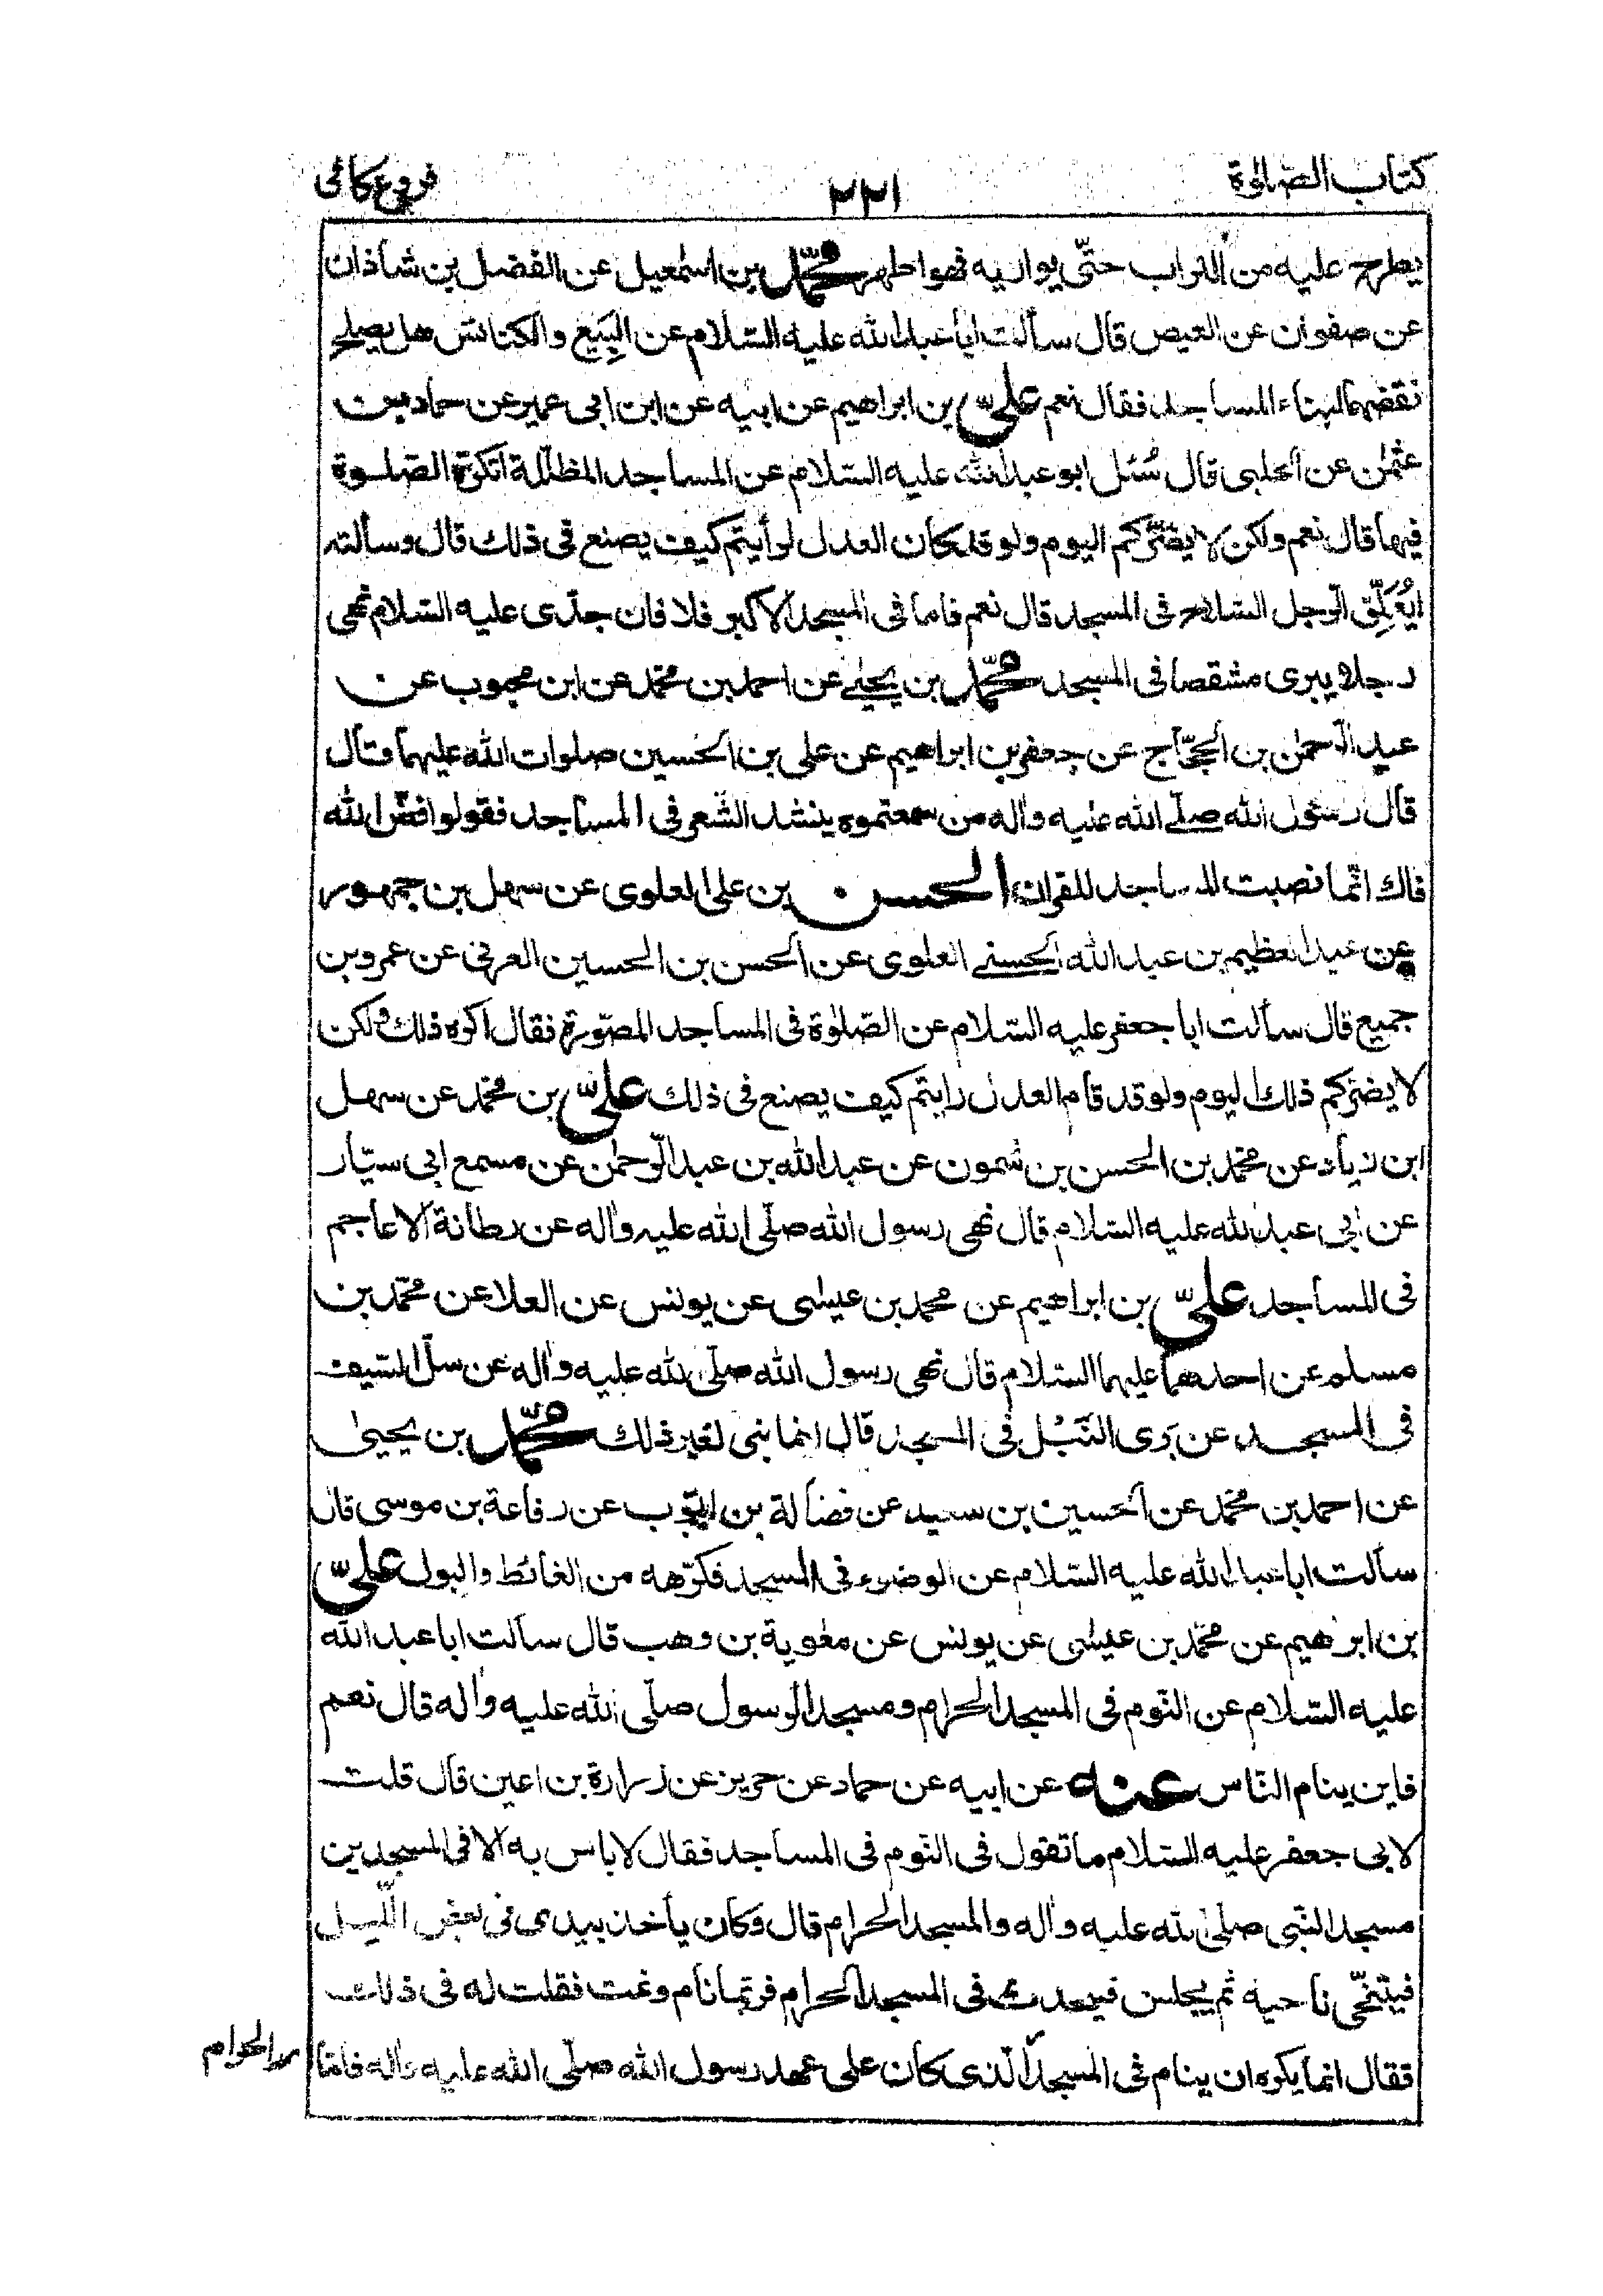 كتاب الصّلوٰة
٢٢١
فروع كافى
يطرح عليه من التراب حتّى يواريه فهو اطهر محمّد بن اسمٰعيل عن الفضل بن شاذان
عن صفوان عن العيص قال سألت ابا عبد الله عليه السّلام عن البِيَع والكنائس هل يصلح
نقضهما لبناء المساجد فقال نعم علىّ بن ابراهيم عن ابيه عن ابن ابى عمير عن حماد بن
عثمٰن عن الحلبى قال سُئل ابو عبد الله عليه السّلام عن المساجد المظلّلة اتكره الصّلوة
فيها قال نعم ولكن لا يضرّكم اليوم ولو قد كان العدل لرأيتم كيف يصنع فى ذلك قال وسألته
ايُعَلِّق الرّجل السّلاح فى المسجد قال نعم فاما فى المسجد الاكبر فلا فان جدّى عليه السّلام نهى
رجلا يبرى مشقصا فى المسجد محمّد بن يحيىٰ عن احمد بن محمّد عن ابن محبوب عن
عبد الرّحمٰن بن الحجّاج عن جعفر بن ابراهيم عن على بن الحسين صلوات الله عليهما قال
قال رسول الله صلّى الله عليه واٰله من سمعتموه ينشد الشّعر فى المساجد فقولوا فضّ الله
فاك انّما نصبت المساجد للقران الحسن بن على العلوى عن سهل بن جمهور
عن عبد العظيم بن عبد الله الحسنى العلوى عن الحسن بن الحسين العرنى عن عمرو بن
جميع قال سألت ابا جعفر عليه السّلام عن الصّلوٰة فى المساجد المصّورة فقال اكره ذلك ولكن
لا يضرّكم ذلك اليوم ولو قد قام العدل رايتم كيف يصنع فى ذلك علىّ بن محمّد عن سهل
ابن زياد عن محمّد بن الحسن بن شمون عن عبد الله بن عبد الرّحمٰن عن مسمع ابى سيّار
عن ابى عبد الله عليه السّلام قال نهى رسول الله صلّى الله عليه واٰله عن رطانة الاعاجم
فى المساجد علىّ بن ابراهيم عن محمد بن عيسٰى عن يونس عن العلا عن محمّد بن
مسلم عن احدهما عليهما السّلام قال نهى رسول الله صلّى الله عليه واٰله عن سلّ السّيف
فى المسجد عن بَرى النَّبْل فى المسجد قال انما بنى لغير ذلك محمّد بن يحيىٰ
عن احمد بن محمّد عن الحسين بن سعيد عن فضالة بن ايّوب عن رفاعة بن موسى قال
سألت ابا عبد الله عليه السّلام عن الوضوء فى المسجد فكرّهه من الغائط والبول علىّ
بن ابرٰهيم عن محمّد بن عيسٰى عن يونس عن معٰوية بن وهب قال سألت ابا عبد الله
عليه السّلام عن النّوم فى المسجد الحرام ومسجد الرّسول صلّى الله عليه واٰله قال نعم
فاين ينام النّاس عنه عن ابيه عن حماد عن حريز عن زرارة بن اعين قال قلت
لابى جعفر عليه السّلام ما تقول فى النّوم فى المساجد فقال لا باس به الا فى المسجدين
مسجد النّبى صلى الله عليه واٰله والمسجد الحرام قال وكان يأخذ بيدى فى بعض اللّيل
فيتنحّى ناحيه ثم يجلس فيحدث فى المسجد الحرام فربّما نام ونمت فقلت له فى ذلك
فقال انما يكره ان ينام فى المسجد الّذى كان على عهد رسول الله صلّى الله عليه واٰله فامّا
الحرام